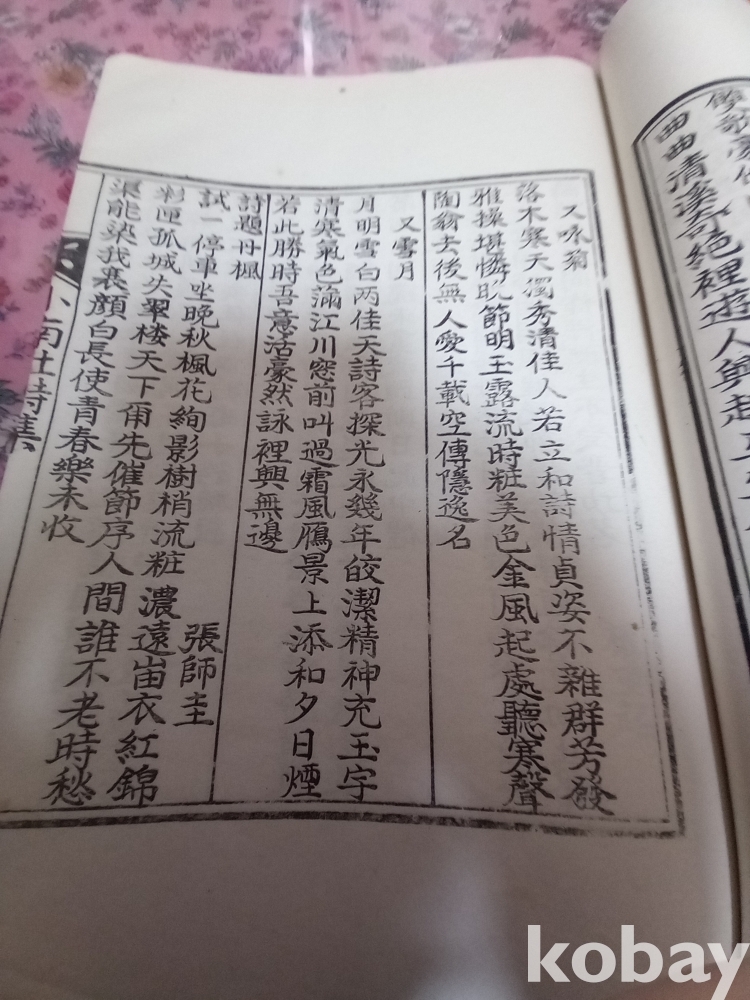 曲曲清溪奇絕裡遊人興起
又咏菊
落木寒天濁秀清佳人若立和詩情貞姿不雜群芳發
雅操堪憐晩節明玉露流時粧美色金風起處聽寒聲
陶翁去後無人愛千載空傳隱逸名
又雪月
月明雪白两佳天詩客探光永幾年皎潔精神充玉宇
清寒氣色滿江川窓前叫過霜風鴈景上添和夕日煙
若此勝時吾意活豪然詠裡興無邊
詩題丹楓
張師圭
試一停車坐晚秋楓花絢影樹梢流粧濃遠岫衣紅錦
彩匝孤城失翠楼天下先催節序人間誰不老時愁
渠能染我衰顔白長使青春樂未收
小南社詩集
kobay